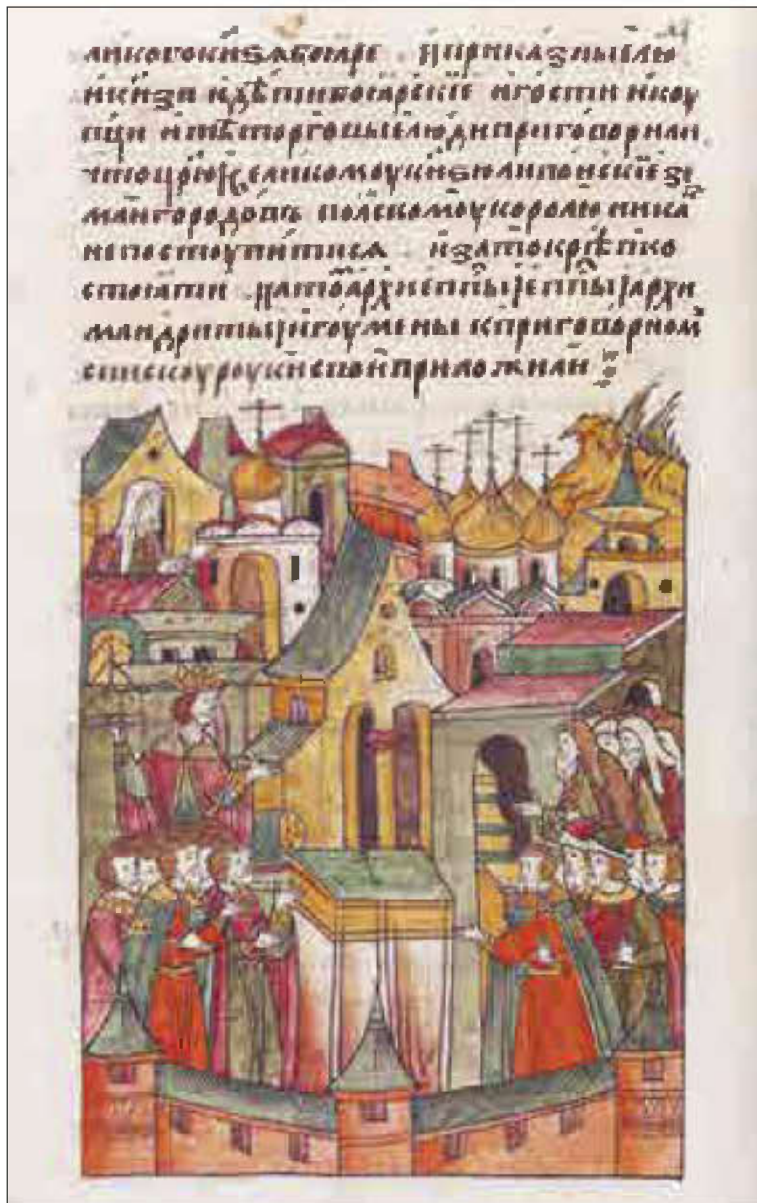 ликогокнѧзѧбоѧре иприказныелю
икнѧзи идѣтибоѧрские игости икоу
пци итѣторговыелюди приговорили
чтоцр҃юївеликомоукнѧзюливонскиеѕе
маигородовъ полскомоукоролю ника
непостоупитисѧ изатокрѣпко
стоѧти натоархиеппы їеппы їархи
мандриты иигоумены кприговорном
спискоуроукисвои приложили